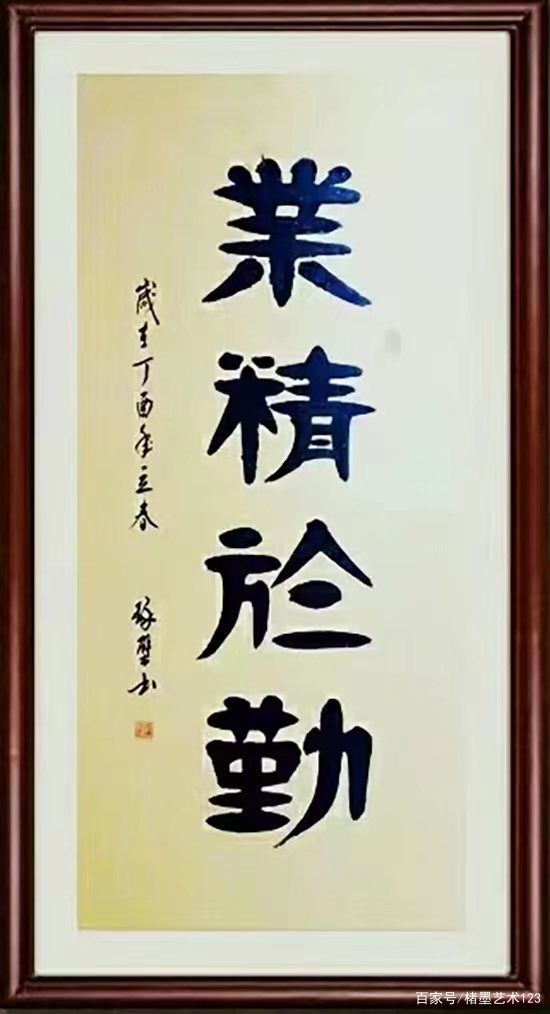 業精於勤
歲在丁酉年立春
書
百家号/楮墨艺术123